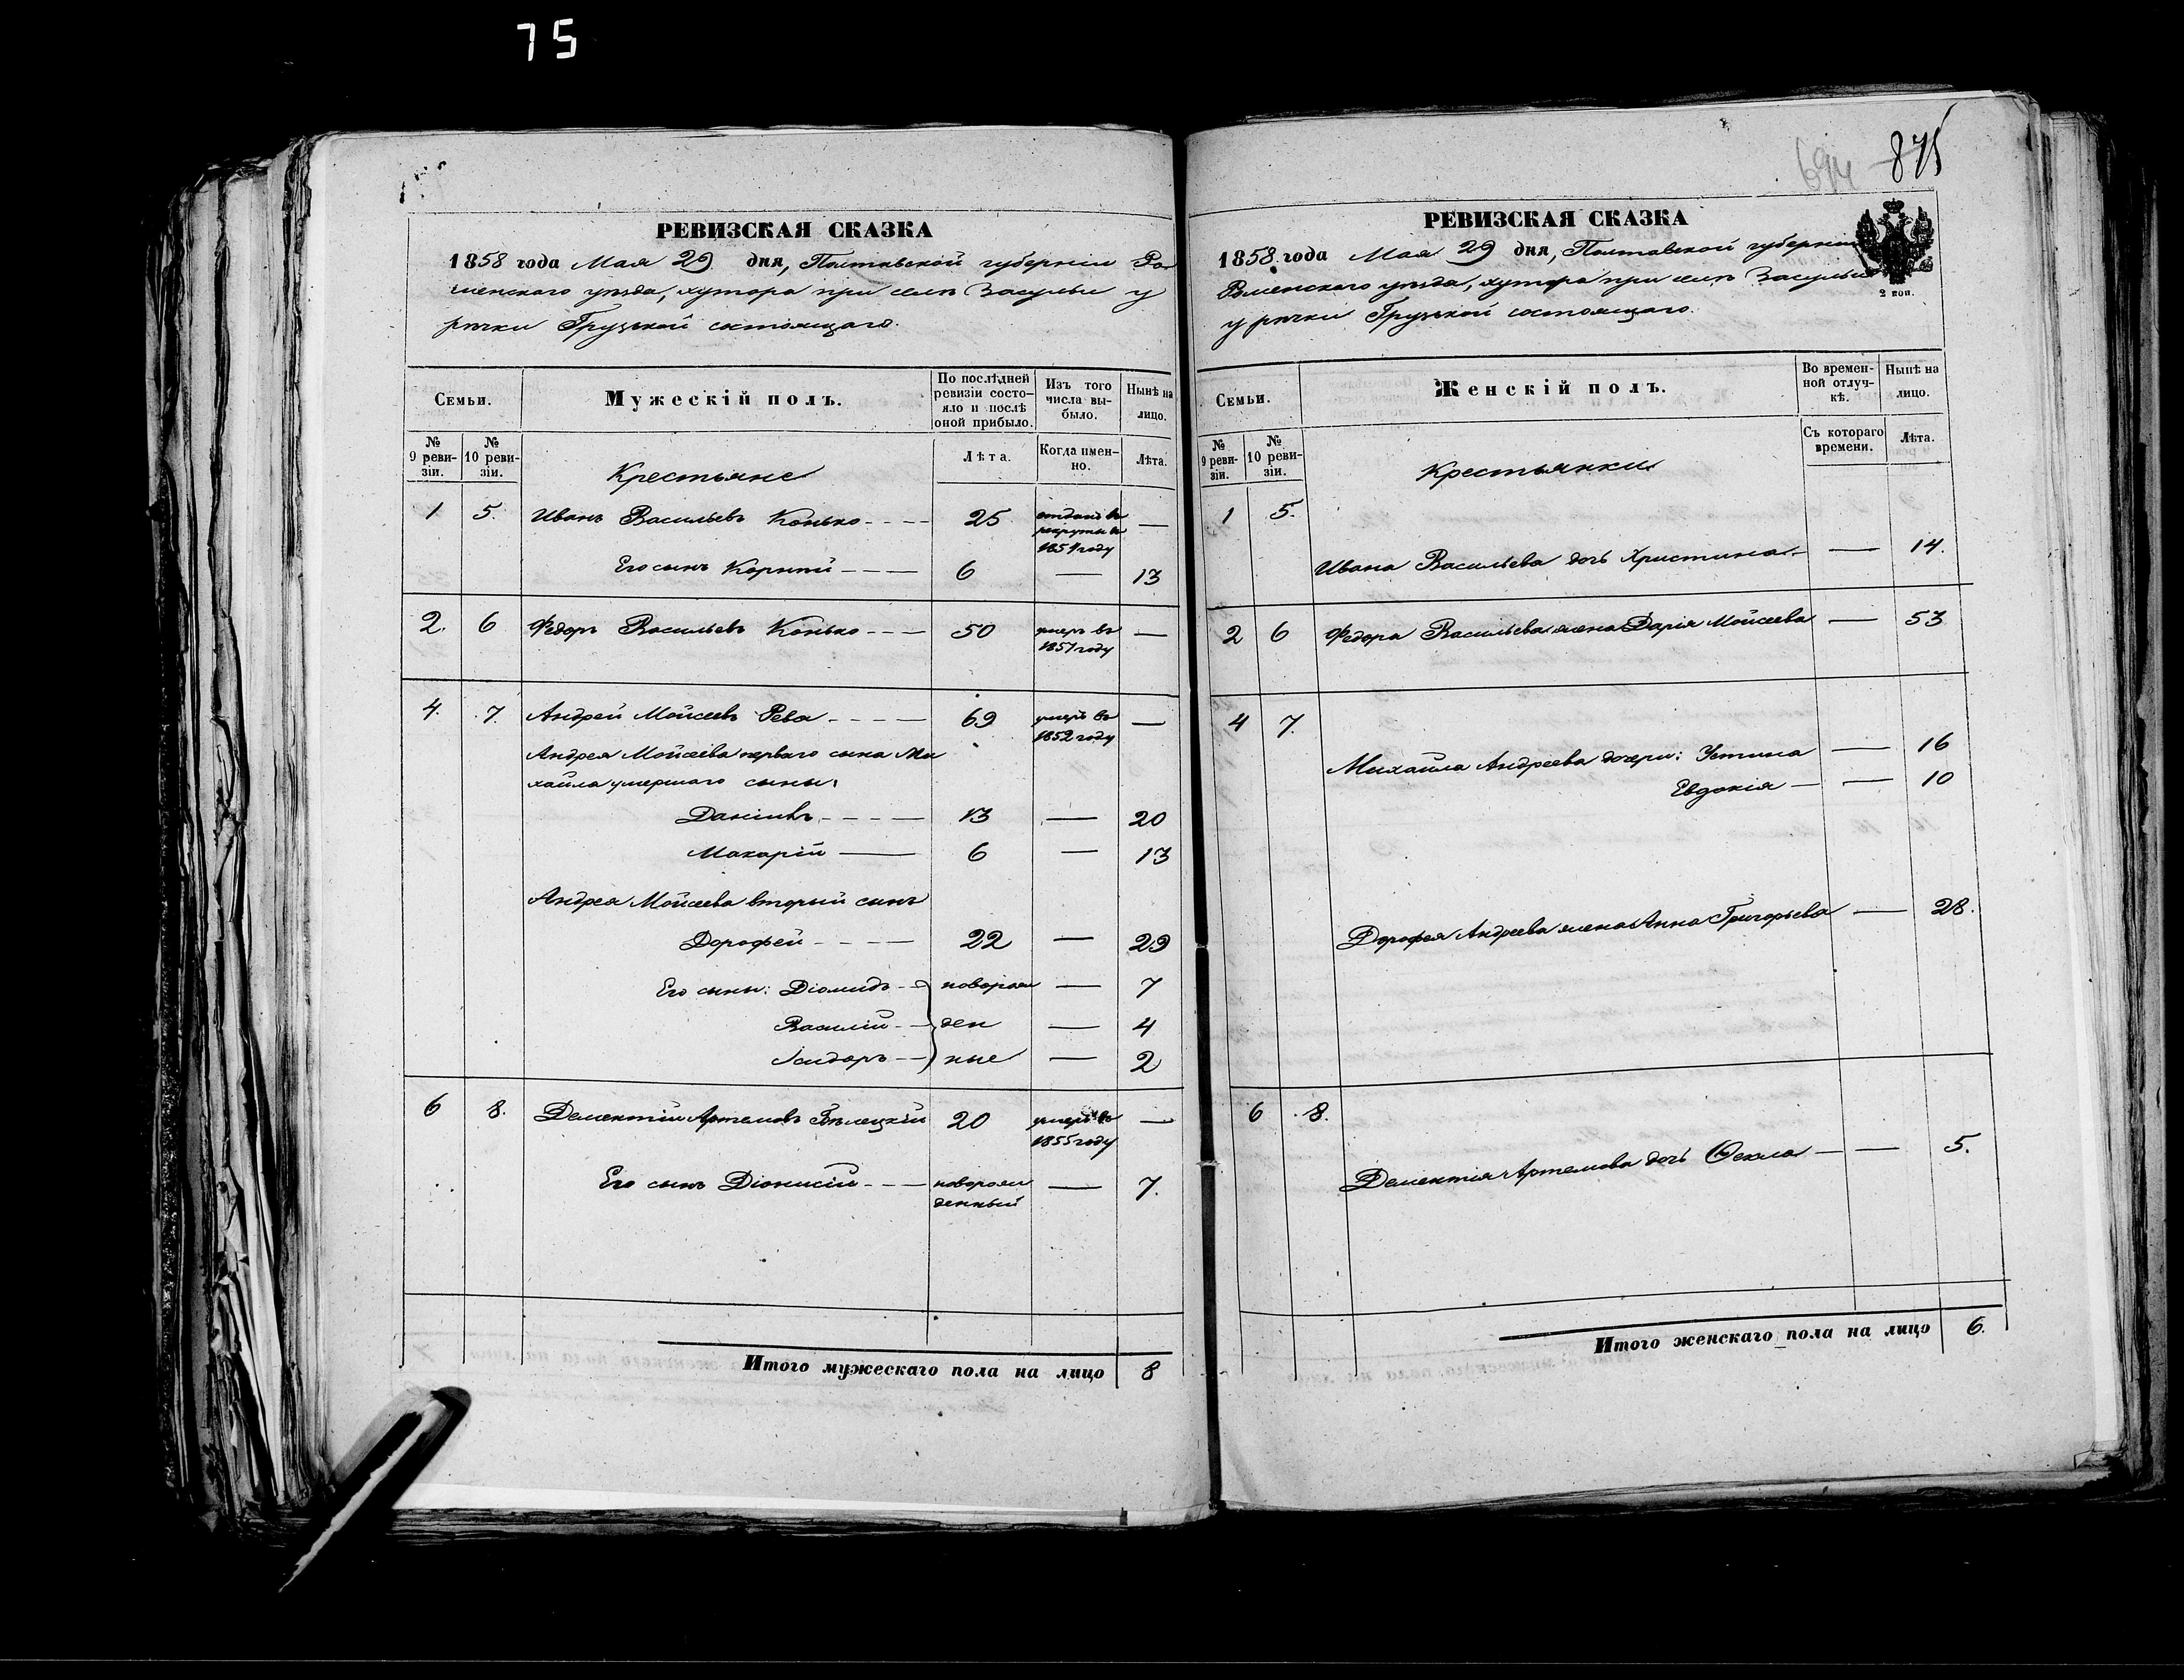 75
РЕВИЗСКАЯ СКАЗКА
1858 года Мая 29 дня, Полтавской губерніи Ро
менскаго уѣзда, хутора при селѣ Засульи у
рѣчки Грузской состоящаго.
Семьи.
Мужескій полъ.
По послѣдней ревизіи состояло и послѣ оной прибыло.
Изъ того числа выбыло.
Нынѣ на лицо.
№ 9 ревизіи.
№ 10 ревизіи.
Крестьяне
Лѣта.
Когда именно.
Лѣта.
1 5. Иванъ Васильевъ Конько 25 отданъ въ рекруты въ 1854 году —
Его сынъ Корнѣй 6 — 13
2. 6 Федоръ Васильевъ Конько 50 умеръ въ 1851 году —
4. 7. Андрей Мойсеевъ Рева 69 умеръ въ 1852 году —
Андрея Мойсеева перваго сына Ми
хайла умершаго сыны:
Даніилъ 13 — 20
Макарій 6 — 13
Андрея Мойсеева вторый сынъ
Дорофей 22 — 29
Его сыны: Діомидъ новорож — 7
Василій ден — 4
Исидоръ ные — 2
6 8. Дементій Артемовъ Бѣлецкій 20 умеръ въ 1855 году —
Его сынъ Діонисій новорож денный — 7.
Итого мужескаго пола на лицо 8
694 875
РЕВИЗСКАЯ СКАЗКА
1858 года Мая 29 дня, Полтавской губерніи
Роменскаго уѣзда, хутора при селѣ Засульи
у рѣчки Грузской состоящаго.
2 коп.
Семьи.
Женскій полъ.
Во временной отлучкѣ.
Нынѣ на лицо.
№ 9 ревизіи.
№ 10 ревизіи.
Крестьянки
Съ котораго времени.
Лѣта.
1 5.
Ивана Васильева дочь Христина — 14.
2 6 Федора Васильева жена Дарія Мойсеева — 53
4 7.
Михайла Андреева дочери: Устина — 16
Евдокія — 10
Дорофея Андреева жена Анна Григорьева — 28.
6 8.
Дементія Артемова дочь Ѳекла — 5.
Итого женскаго пола на лицо 6.